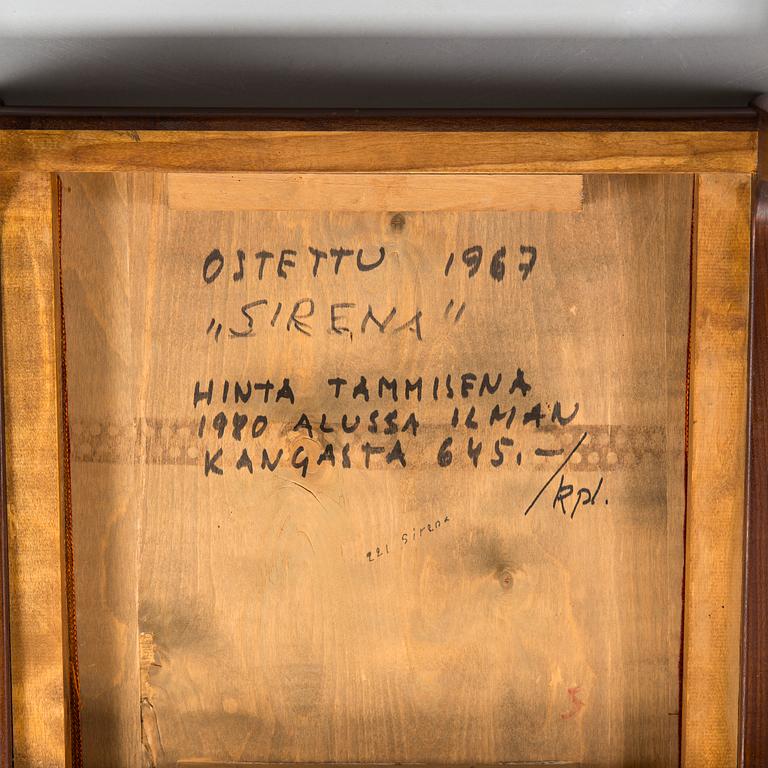 OSTETTU 1967
„SIRENA"
HINTA TAMMISENA
1980 ALUSSA ILMAN
KANGASTA 645.-/kpl.
221 Sirena
5